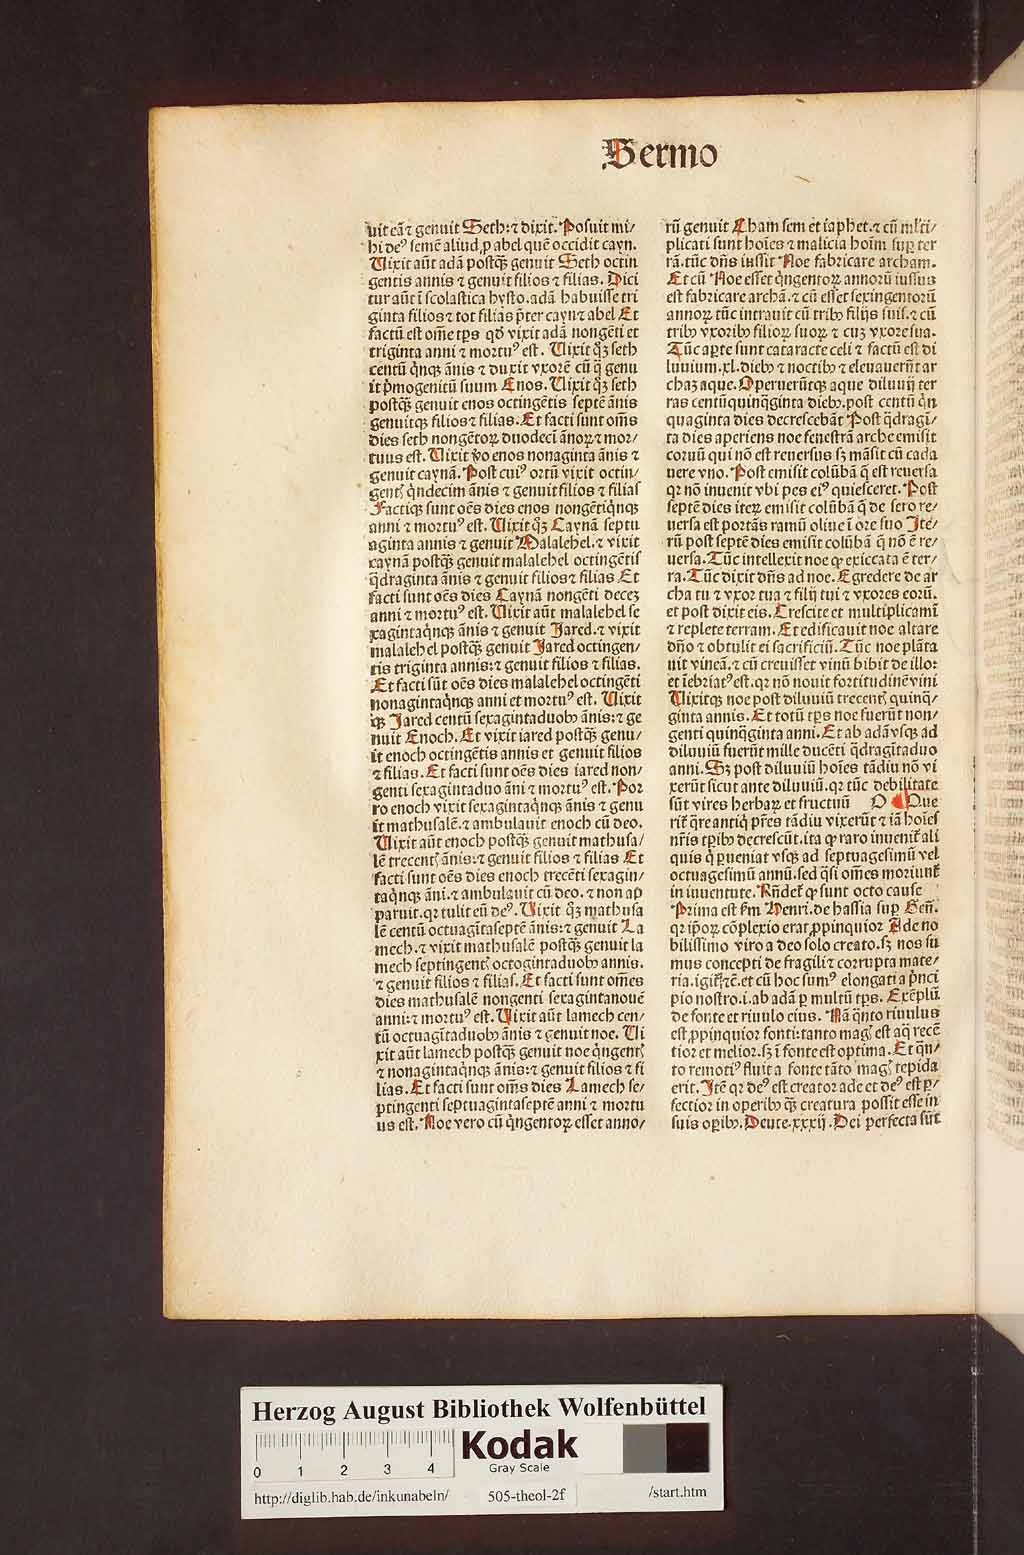 Sermo
uit eā ⁊ genuit Seth: ⁊ dixit. Posuit mi/
hi deꝰ semē aliud ꝓ abel quē occidit cayn.
Uixit aūt adā postq̄ꝫ genuit Seth octin
gentis annis ⁊ genuit filios ⁊ filias. Dici
tur aūt ī scolastica hysto. adā habuisse tri
ginta filios ⁊ tot filias p̄ter cayn ⁊ abel Et
factū est om̄e tp̄s qḋ vixit adā nongēti et
triginta anni ⁊ mortuꝰ est. Uixit q̊ꝫ seth
centū q̇nqꝫ ānis ⁊ duxit vxorē cū q̄ genu
it p̓mogenitū suum Enos. Uixit q̊ꝫ seth
postq̄ꝫ genuit enos octingētis septē ānis
genuitqꝫ filios ⁊ filias. Et facti sunt om̄s
dies seth nongētoꝝ duodecī ānoꝝ ⁊ mor/
tuus est. Uixit v̊o enos nonaginta ānis ⁊
genuit caynā. Post cuiꝰ ortū vixit octin/
gentꝭ q̇ndecim ānis ⁊ genuit filios ⁊ filias
Factiqꝫ sunt oēs dies enos nongētiq̇nqꝫ
anni ⁊ mortuꝰ est. Uixit q̊ꝫ Caynā septu
aginta annis ⁊ genuit Malalehel. ⁊ vixit
caynā postq̄ꝫ genuit malalehel octingētis
q̄draginta ānis ⁊ genuit filios ⁊ filias Et
facti sunt oēs dies Caynā nongēti deceꝫ
anni ⁊ mortuꝰ est. Uixit aūt malalehel se
xagintaq̇nqꝫ ānis ⁊ genuit Jared. ⁊ vixit
malalehel postq̄ꝫ genuit Jared octingen/
tis triginta annis: ⁊ genuit filios ⁊ filias.
Et facti sūt oēs dies malalehel octingēti
nonagintaq̇nqꝫ anni et mortuꝰ est. Uixit
qꝫ Jared centū sexagintaduobꝫ ānis: ⁊ ge
nuit Enoch. Et vixit iared postq̄ꝫ genu/
it enoch octingētis annis et genuit filios
⁊ filias. Et facti sunt oēs dies iared non/
genti sexagintaduo āni ⁊ mortuꝰ est. Por
ro enoch vixit sexagintaq̇nqꝫ ānis ⁊ genu
it mathusalē. ⁊ ambulauit enoch cū deo.
Uixit aūt enoch postq̄ꝫ genuit mathusa/
lē trecentꝭ ānis: ⁊ genuit filios ⁊ filias Et
facti sunt oēs dies enoch trecēti sexagin/
taq̇nqꝫ āni. ⁊ ambulauit cū deo. ⁊ non ap
paruit. qꝛ tulit eū deꝰ. Uixit q̊ꝫ mathusa
lē centū octuagītaseptē ānis: ⁊ genuit La
mech. ⁊ vixit mathusalē postq̄ꝫ genuit la
mech septingentꝭ octogintaduobꝫ annis.
⁊ genuit filios ⁊ filias. Et facti sunt om̄es
dies mathusalē nongenti sexagintanouē
anni: ⁊ mortuꝰ est. Uixit aūt lamech cen/
tū octuagītaduobꝫ ānis ⁊ genuit noe. Ui
xit aūt lamech postq̄ꝫ genuit noe q̇ngentꝭ
⁊ nonagintaq̇nqꝫ ānis: ⁊ genuit filios ⁊ fi
lias. Et facti sunt om̄s dies Lamech se/
ptingenti septuagintaseptē anni ⁊ mortu
us est. Noe vero cū q̇ngentoꝝ esset anno/
rū genuit Cham sem et iaphet. ⁊ cū ml̓ti/
plicati sunt hoīes ⁊ malicia hoīm suꝑ ter
rā. tūc dn̄s iussit Noe fabricare archam.
Et cū Noe esset q̇ngentoꝝ annorū iussus
est fabricare archā. ⁊ cū esset sexingentorū
annoꝝ tūc intrauit cū tribꝫ filijs suis. ⁊ cū
tribꝫ vxoribꝫ filioꝝ suoꝝ ⁊ cuꝫ vxore sua.
Tūc aꝑte sunt cataracte celi ⁊ factū est di
luuium .xl. diebꝫ ⁊ noctibꝫ ⁊ eleuauerūt ar
chaꝫ aque. Operuerūtqꝫ aque diluuij ter
ras centūquinq̄ginta diebꝫ. post centū q̇n
quaginta dies decrescebāt Post q̄dragī/
ta dies aperiens noe fenestrā arche emisit
coruū qui nō est reuersus sꝫ māsit cū cada
uere vno. Post emisit colūbā q̄ est reuersa
qꝛ nō inuenit vbi pes eiꝰ quiesceret. Post
septē dies iteꝝ emisit colūbā q̄ de sero re/
uersa est portās ramū oliue ī ore suo Ite/
rū post septē dies emisit colūbā q̄ nō ē re/
uersa. Tūc intellexit noe ꝙ exiccata ē ter/
ra. Tūc dixit dn̄s ad noe. Egredere de ar
cha tu ⁊ vxor tua ⁊ filij tui ⁊ vxores eorū.
et post dixit eis. Crescite et multiplicamī
⁊ replete terram. Et edificauit noe altare
dn̄o ⁊ obtulit ei sacrificiū. Tūc noe plāta
uit vineā. ⁊ cū creuisset vinū bibit de illo:
et īebriatꝰ est. qꝛ nō nouit fortitudinē vini
Uixitqꝫ noe post diluuiū trecentꝭ quinq̄/
ginta annis. Et totū tp̄s noe fuerūt non/
genti quinq̄ginta anni. Et ab adā vsqꝫ ad
diluuiū fuerūt mille ducēti q̄dragītaduo
anni. Sꝫ post diluuiū hoīes tādiu nō vi
xerūt sicut ante diluuiū. qꝛ tūc debilitate
sūt vires herbaꝝ et fructuū O Que
rit̄ q̄re antiq̇ pr̄es tādiu vixerūt ⁊ iā hoīes
nr̄is tꝑibꝫ decrescūt. ita ꝙ raro inuenit̄ ali
quis q̇ ꝑueniat vsqꝫ ad septuagesimū vel
octuagesimū annū. sed q̄si om̄es moriunt̄
in iuuentute. Rn̄det̄ ꝙ sunt octo cause
Prima est km̄ Henri. de hassia suꝑ Gen̄.
qꝛ ip̄oꝝ cōplexio erat ꝓpinquior Ade no
bilissimo viro a deo solo creato. sꝫ nos su
mus concepti de fragili ⁊ corrupta mate/
ria. igit̄ ⁊c̄. et cū hoc sumꝰ elongati a p̓nci
pio nostro .i. ab adā ꝑ multū tp̄s. Exēplū
de fonte et riuulo eius. Nā q̄nto riuulus
est ꝓpinquior fonti: tanto magꝭ est aq̄ recē
tior et melior. sꝫ ī fonte est optima. Et q̄n/
to remotiꝰ fluit a fonte tāto magꝭ tepida
erit. Itē qꝛ deꝰ est creator ade et deꝰ est ꝑ/
fectior in operibꝫ q̄ꝫ creatura possit esse in
suis oꝑibꝫ. Deute. xxxij. Dei perfecta sūt
Herzog August Bibliothek Wolfenbüttel
0 1 2 3 4
Kodak
Gray Scale
http://diglib.hab.de/inkunabeln/ 505-theol-2f /start.htm